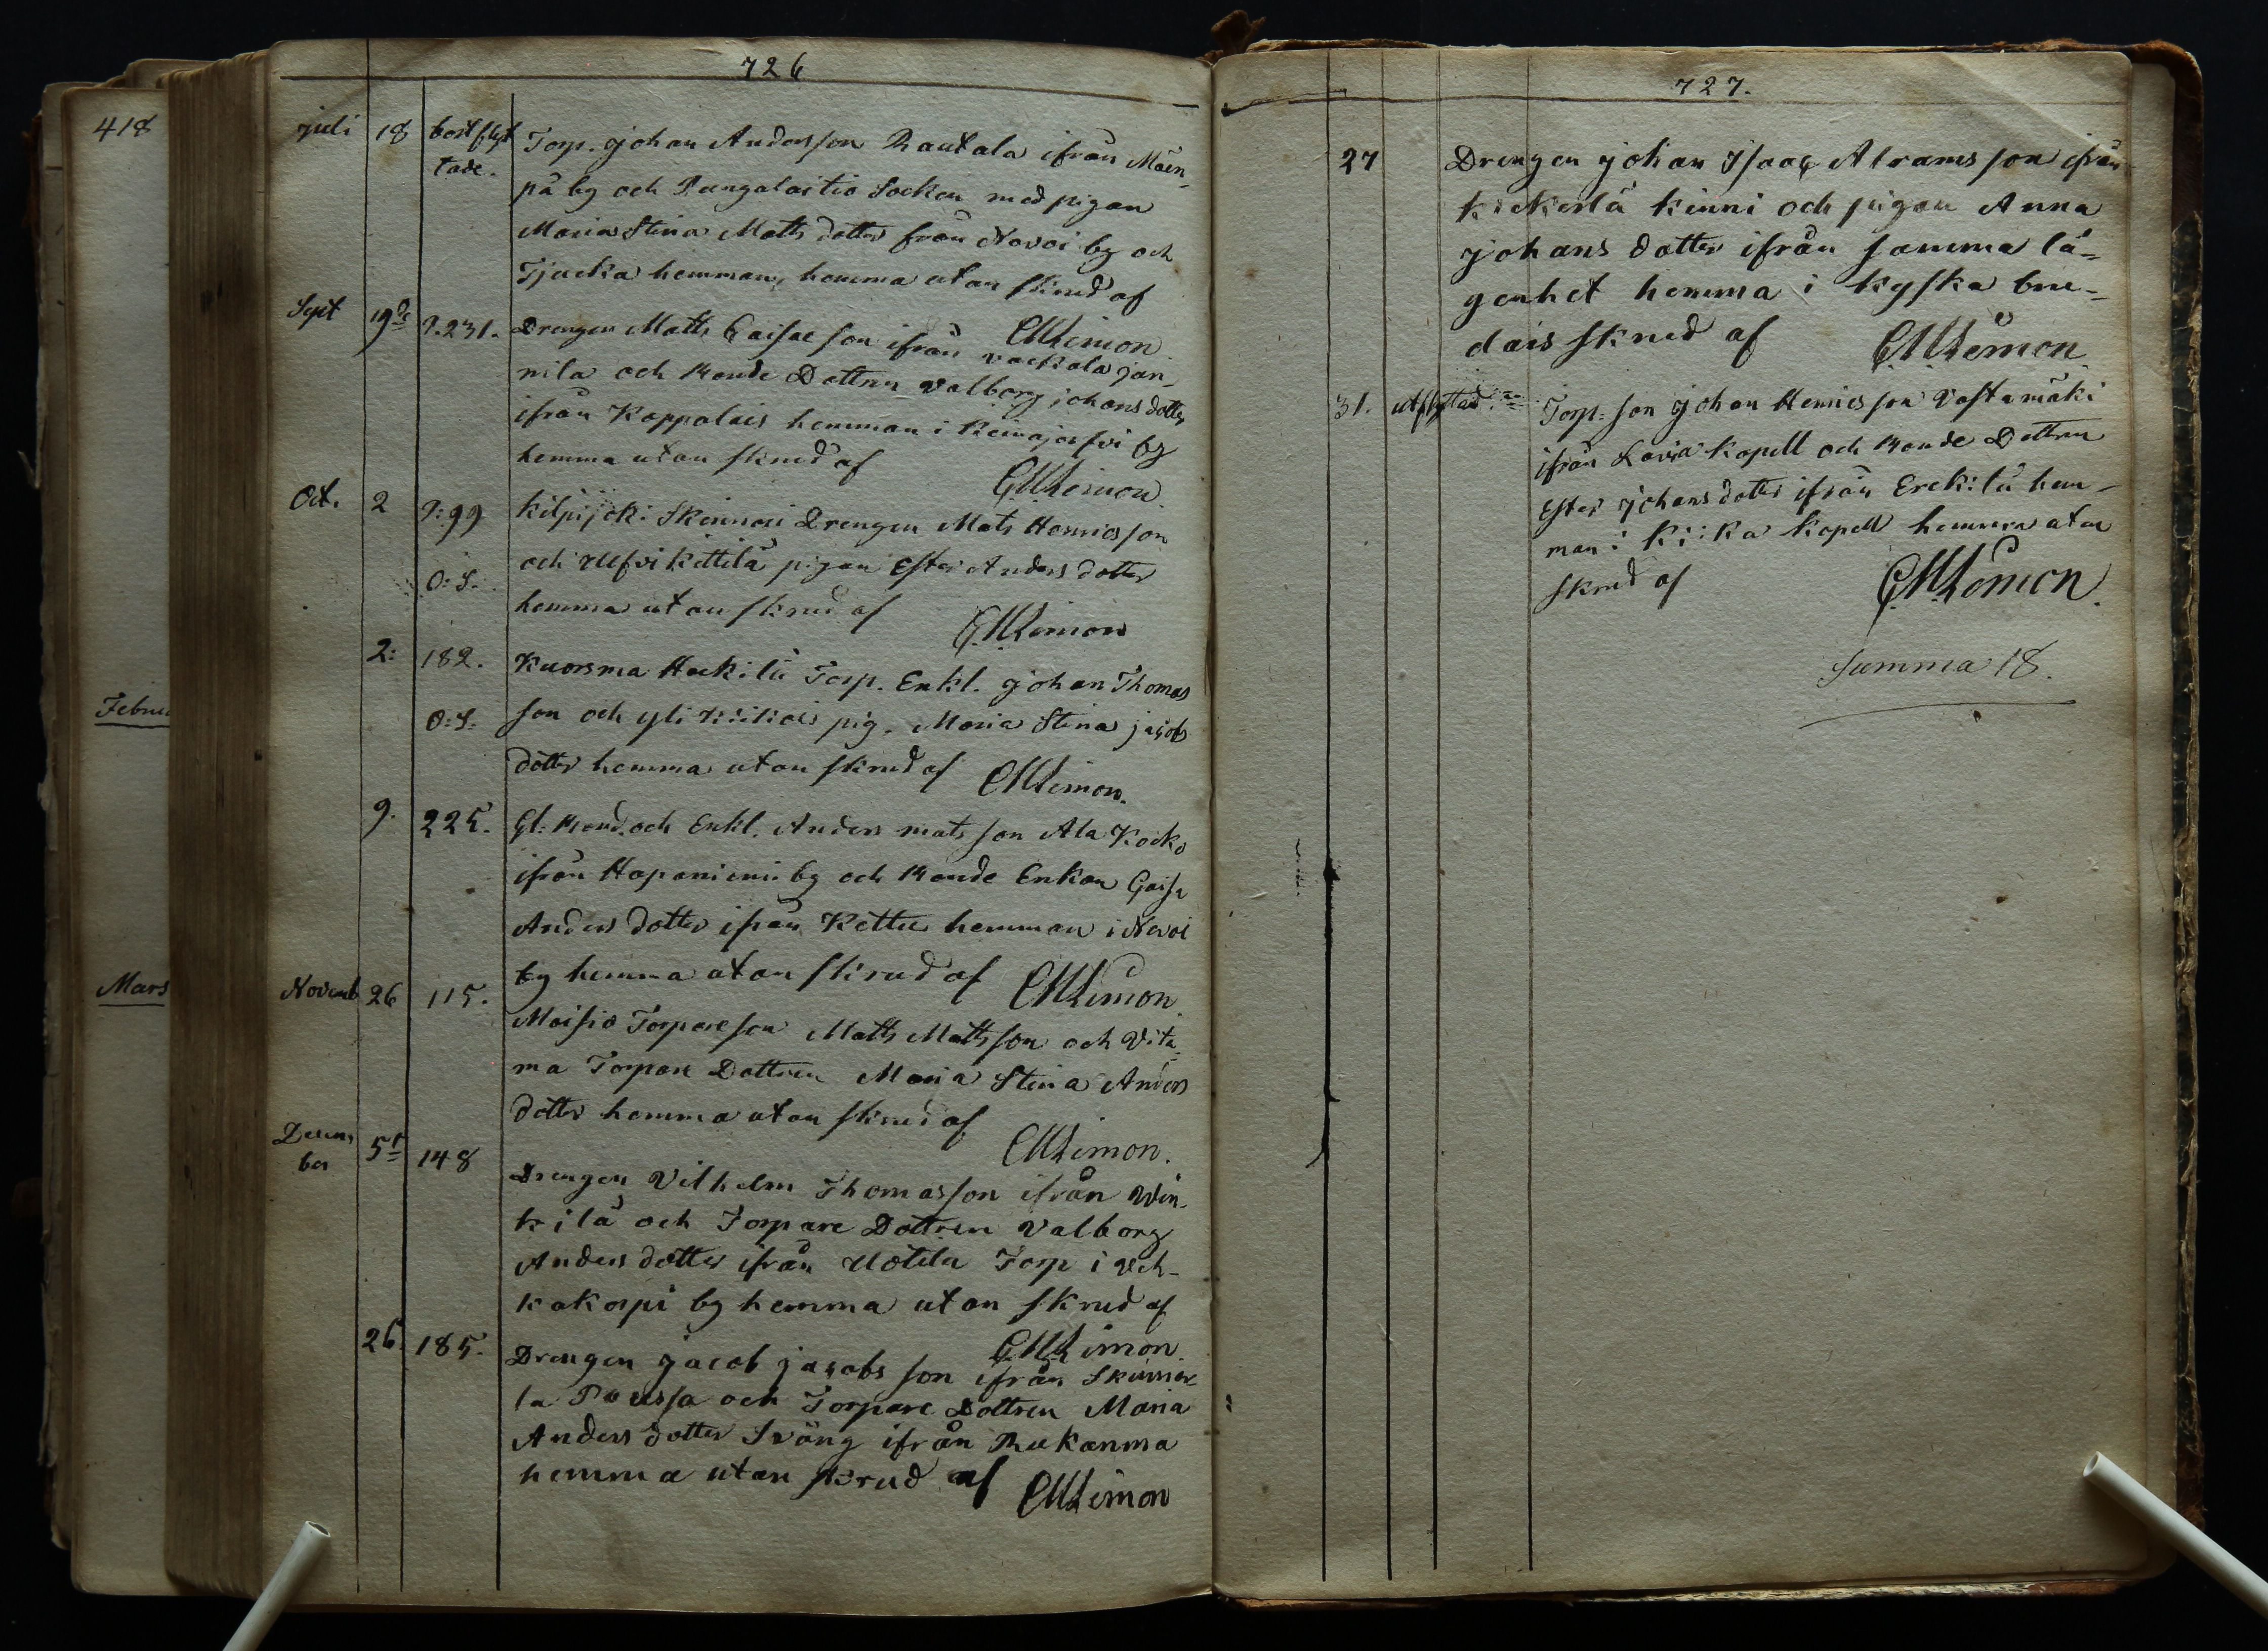 418
Febru
Mars
726
juli 18 bortflyt Torp. johan Andersson Rautala ifrån Måin-
tade. på by och Pungalaitio Socken med pigan
Maria Stina Matts dotter från Novoi by och
Tjucka hemman, hemma utan skrud af
GMLemon
Sept 19de P.231. Drengen Matts Caisae son ifrån vackala jan-
nila och Bonde Dottren Valborg johans dotter
ifrån Kappalais hemman i Reinajerfvi by
hemma utan skrud af
GMLemon
Oct. 2 P:99 kilpijoki Skinnari Drengen Mats Henricsson
O:S. och Ulfvi kittilä pigan Ester Anders dotter
hemma utan skrud af
GMLemon
2: 182. Kuorsma Heikilä Torp. Enkl. johan Thomas
O:S. son och yli Kiikois pig. Maria Stina jacobs
dotter hemma utan skrud af GMLemon.
9. 225. Gl: Bond. och Enkl. Anders mats son Ala Kocko
ifrån Haponiemi by och Bonde Enkan Caisa
Anders dotter ifrån Kettu hemman i Novoi
by hemma utan skrud af GMLemon.
Novemb 26 115. Moisio Torpare son Matts Matts son och Vita-
ma Torpare Dottren Maria Stina Anders
dotter hemma utan skrud af
GMLemon.
Decem
ber 5t 148 Drengen Vilhelm Thomasson ifrån Win-
kilä och Torpare Dottren Valborg
Anders dotter ifrån Uotila Torp i Veh-
kakorpi by hemma utan skrud af
GMLemon
26. 185. Drengen jacob jacobs son ifrån Skinnar-
la Poussa och Torpare Dottren Maria
Anders dotter Sväng ifrån Rukanma
hemma utan skrud af GMLemon
727.
27 Drengen johan Isaac Abramsson ifrån
kiekerlä kinni och pigan Anna
johans dotter ifrån samma lä-
genhet hemma i kyska bru-
dais skrud af GMLemon
31. utflyttad Torp: son johan Henricsson Vastamäki
ifrån Lavia kapell och Bonde Dottren
Ester johansdotter ifrån Erckilä hem-
man i Kiika kapell hemma utan
skrud af GMLemon.
Summa 18.